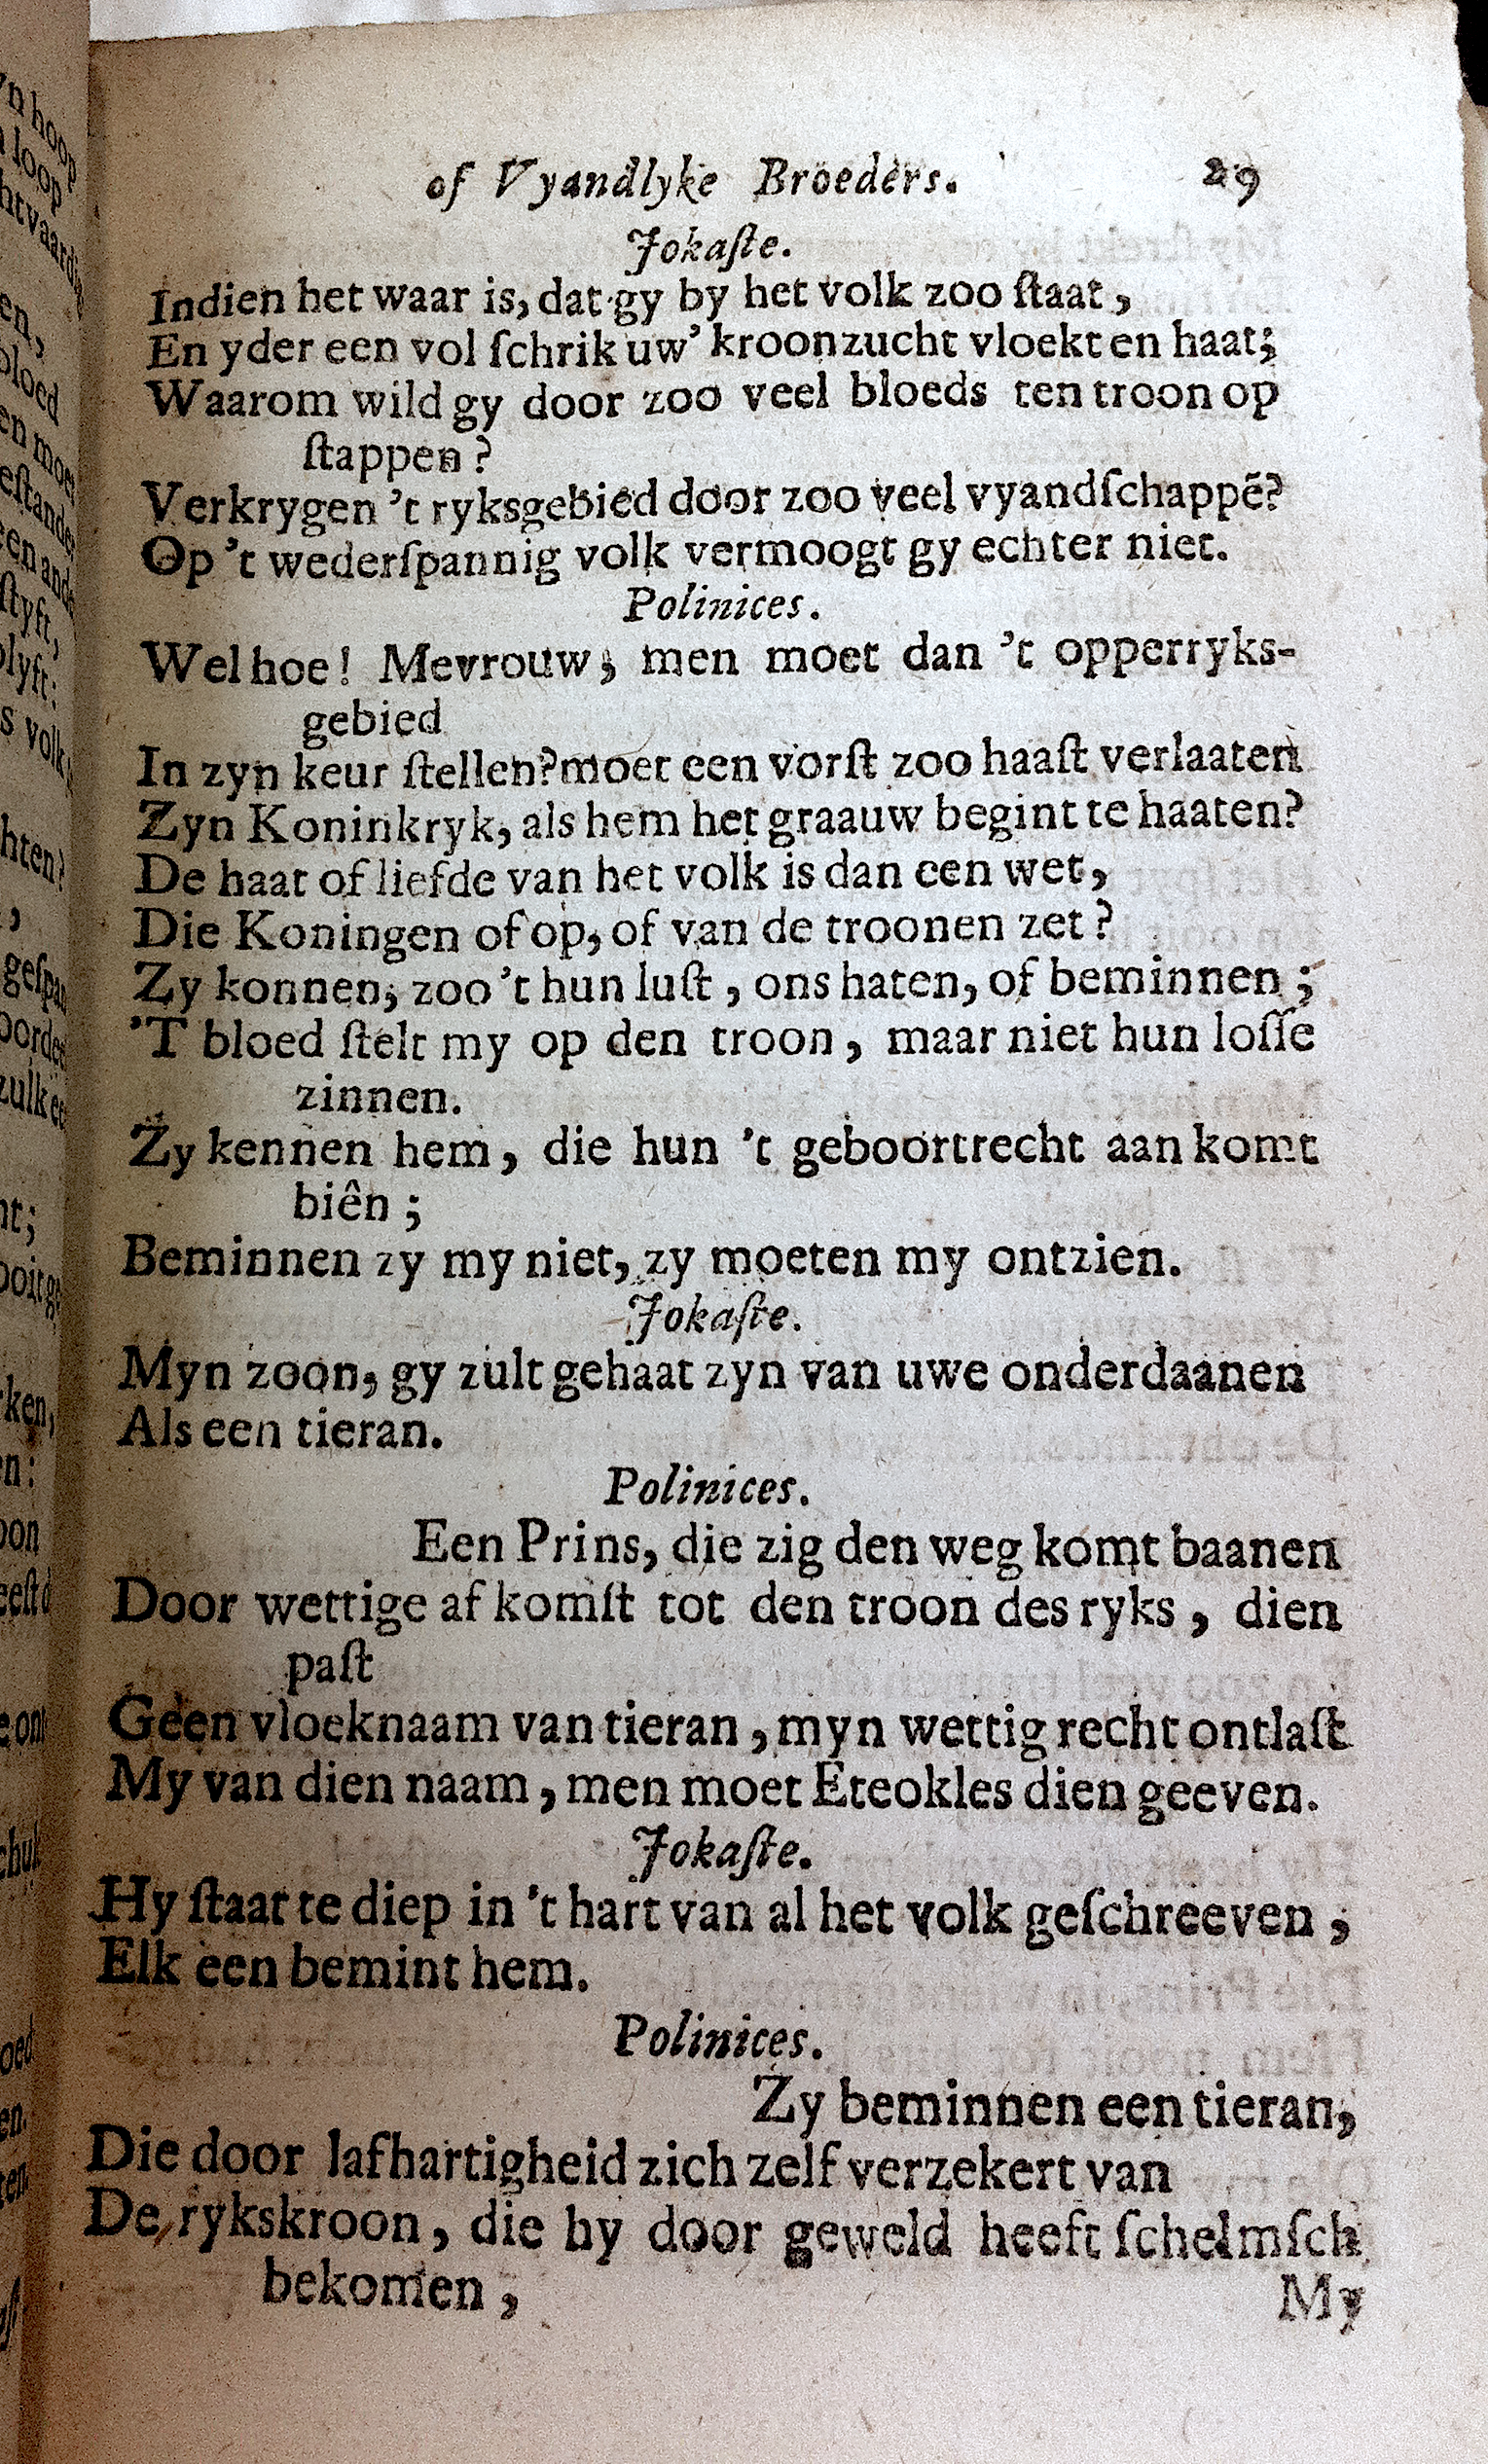 of Vyandlyke Broeders. 29
Jokaſte.
Indien het waar is, dat gy by het volk zoo ſtaat,
En yder een vol ſchrik uw' kroonzucht vloekt en haat;
Waarom wild gy door zoo veel bloeds ten troon op
ſtappen?
Verkrygen 't ryksgebied door zoo veel vyandſchappē?
Op 't wederſpannig volk vermoogt gy echter niet.
Polinices.
Wel hoe! Mevrouw, men moet dan 't opperryks-
gebied
In zyn keur ſtellen? moet een vorſt zoo haaſt verlaaten
Zyn Koninkryk, als hem het graauw begint te haaten?
De haat of liefde van het volk is dan een wet,
Die Koningen of op, of van de troonen zet?
Zy konnen, zoo 't hun luſt, ons haten, of beminnen;
'T bloed ſtelt my op den troon, maar niet hun loſſe
zinnen.
Zy kennen hem, die hun 't geboortrecht aan komt
biên;
Beminnen zy my niet, zy moeten my ontzien.
Jokaſte.
Myn zoon, gy zult gehaat zyn van uwe onderdaanen
Als een tieran.
Polinices.
Een Prins, die zig den weg komt baanen
Door wettige af komſt tot den troon des ryks, dien
paſt
Geen vloeknaam van tieran, myn wettig recht ontlaſt
My van dien naam, men moet Eteokles dien geeven.
Jokaſte.
Hy ſtaat te diep in 't hart van al het volk geſchreeven,
Elk een bemint hem.
Polinices.
Zy beminnen een tieran,
Die door lafhartigheid zich zelf verzekert van
De rykskroon, die hy door geweld heeft ſchelmſch
bekomen,
My